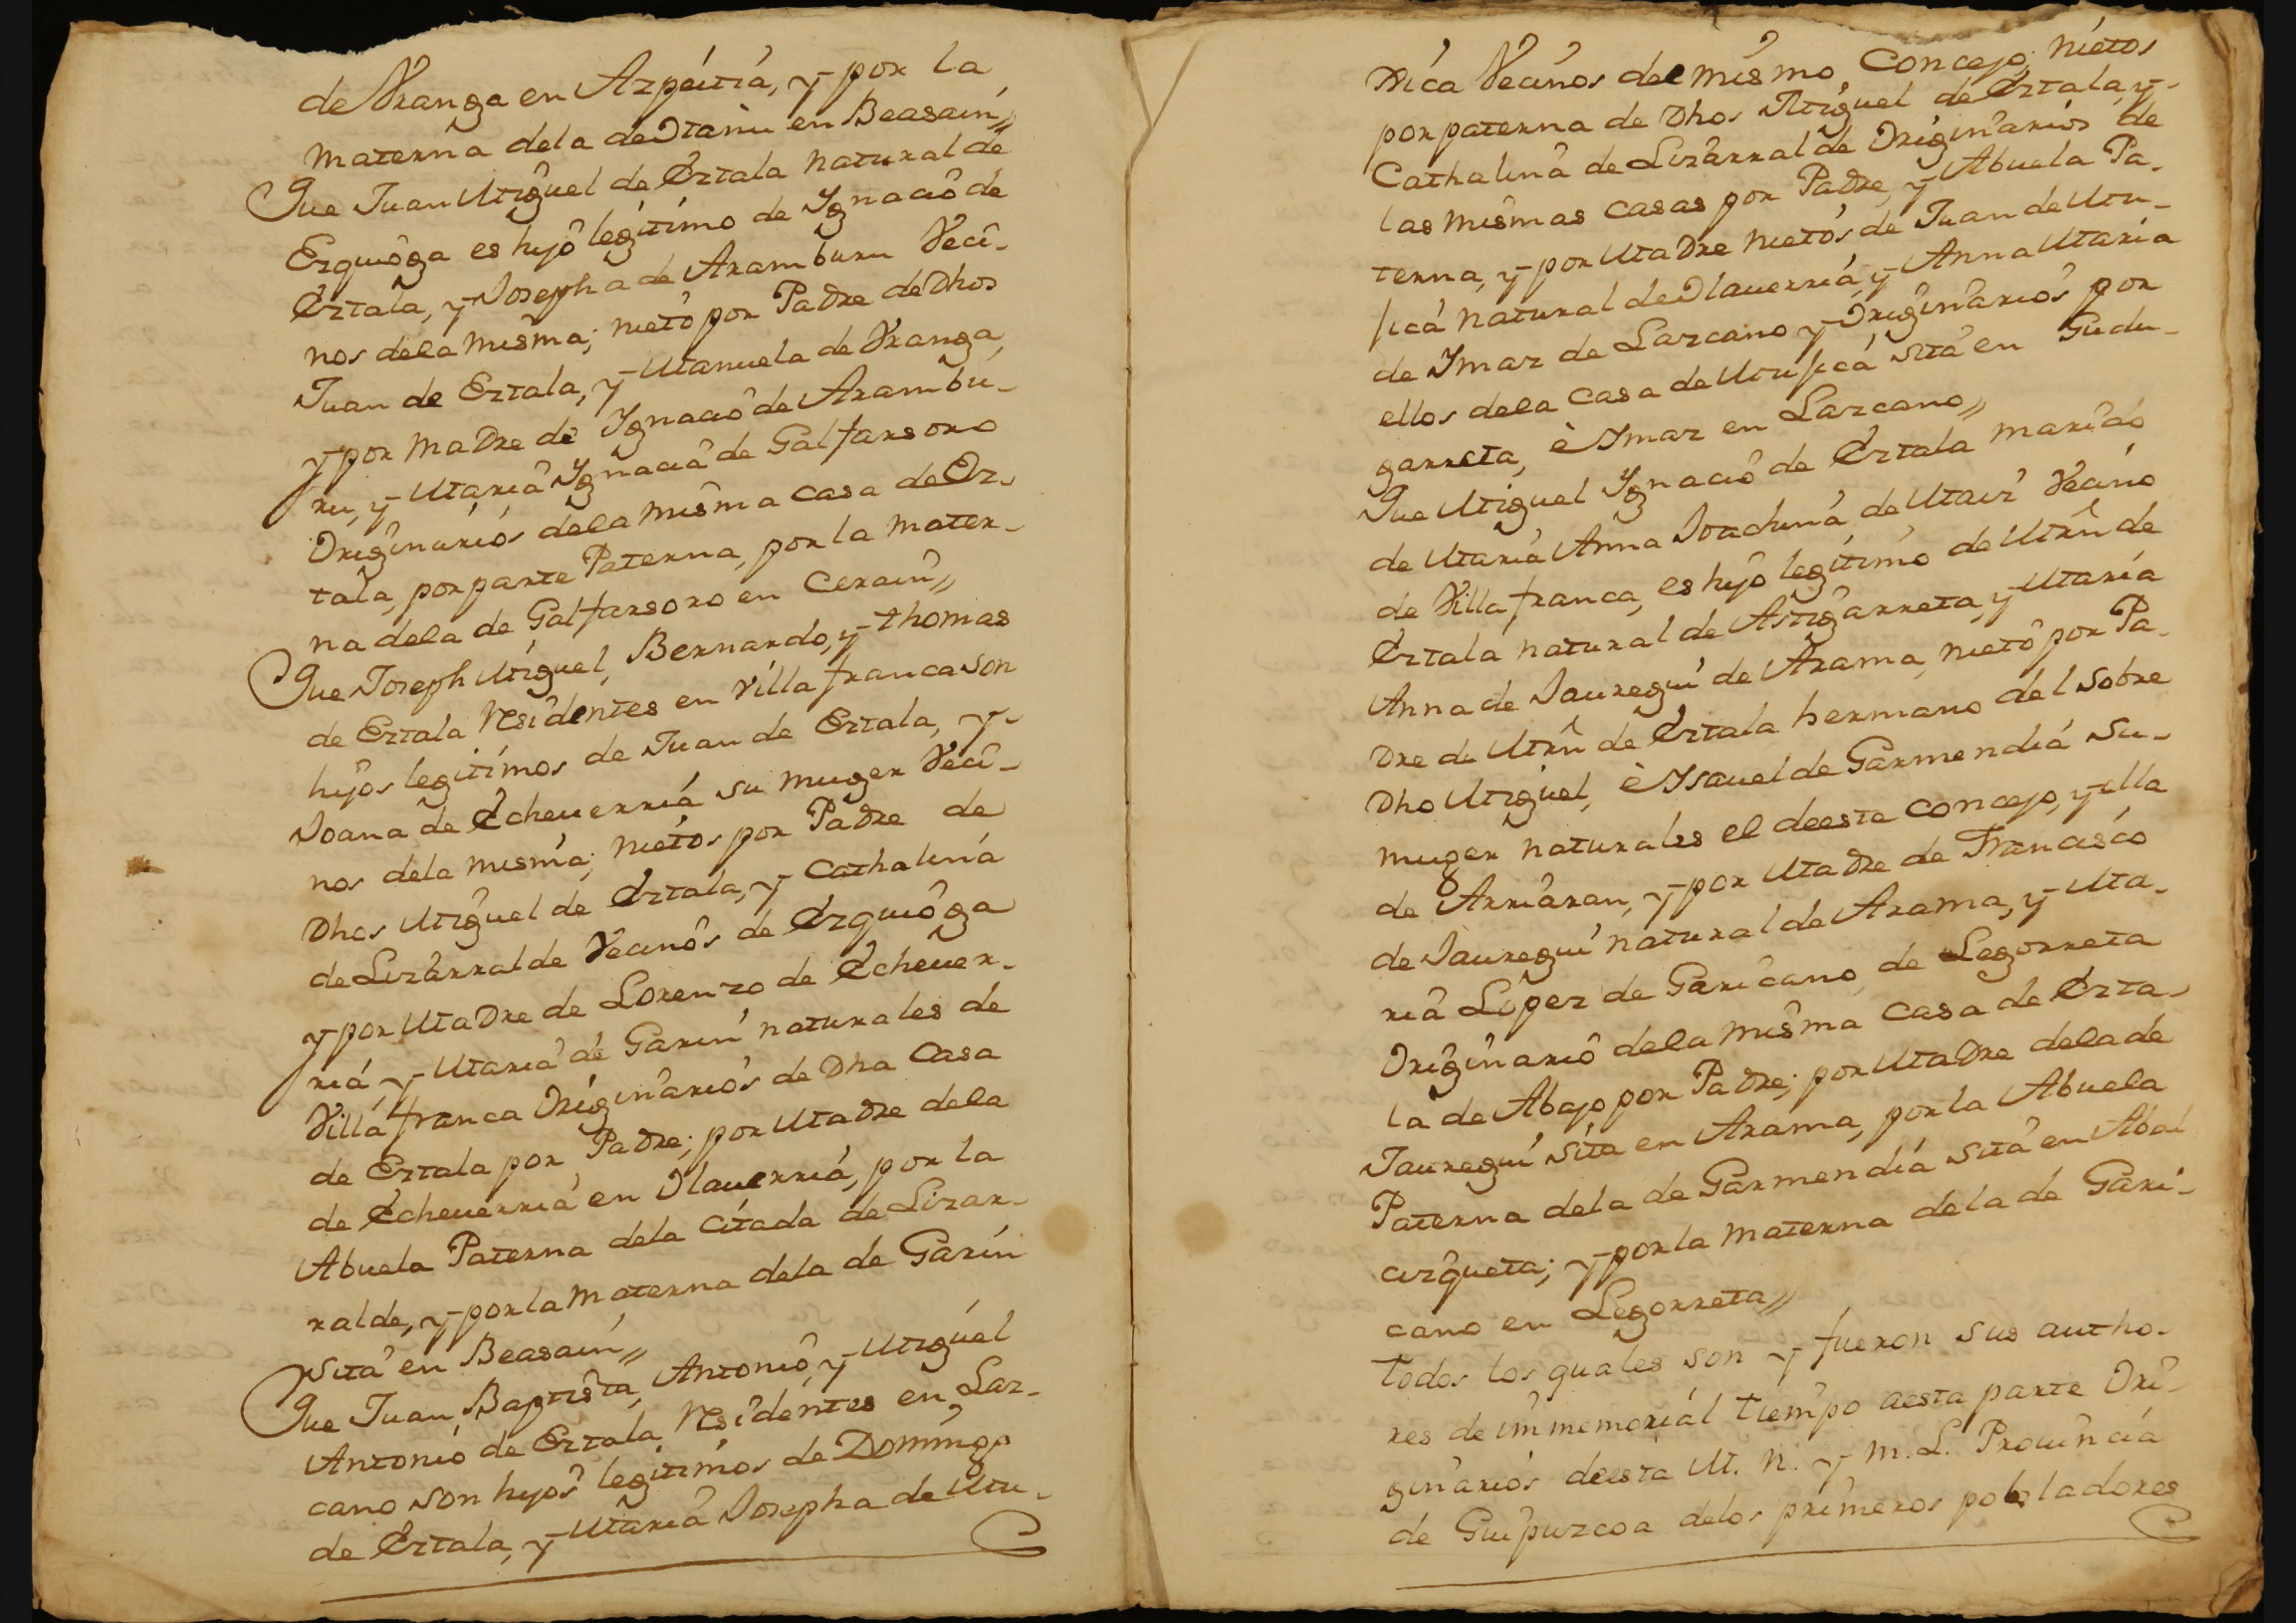 de Vranga en Azpeitia, y por la
materna dela de Otanu en Beasain,,
Que Juan Miguel de Eztala natural de
Ezquioga es hijo legitimo de Ygnacio de
Eztala, y Josepha de Aramburu Veci-
nos dela misma; nieto por Padre de Dhos
Juan de Eztala, y Manuela de Vranga,
y por Madre de Ygnacio de Arambu-
ru, y Maria Ygnacia de Galfarsoro
Originarios dela misma casa de Ez-
tala, por parte Paterna, por la mater-
na dela de Galfarsoro en Cerain,,
Que Joseph Miguel, Bernardo, y thomas
de Eztala residentes en Villafranca son
hijos legitimos de Juan de Eztala, y
Joana de Echeuerria su muger Veci-
nos dela misma; nietos por Padre de
Dhos Miguel de Eztala, y Cathalina
de Lizarralde Vecinos de Ezquioga
y por Madre de Lorenzo de Echeuer-
ria, y Maria de Garin naturales de
Villafranca Originarios de Dha Casa
de Eztala por Padre; por Madre dela
de Echeuerria en Olauerria, por la
Abuela Paterna dela citada de Lizar-
ralde, y por la materna dela de Garin
sita en Beasain,,
Que Juan Baptista, Antonio, y Miguel
Antonio de Eztala residentes en Laz-
cano son hijos legitimos de Domingo
de Eztala, y Maria Josepha de Mu-
xica Vecinos del mismo Concejo; nietos
por paterna de Dhos Miguel de Eztala, y
Cathalina de Lizarralde Originarios de
las mismas casas por Padre, y Abuela Pa-
terna, y por Madre nietos de Juan de Mu-
sica natural de Olauerria, y Anna Maria
de Ymaz de Lazcano y Originarios por
ellos dela casa de Musica sita en Gudu-
garreta, è Ymaz en Lazcano,,
Que Miguel Ygnacio de Eztala marido
de Maria Anna Joachina de Maiz Vecino
de Villafranca, es hijo legitimo de Mrn de
Eztala natural de Astigarreta, y Maria
Anna de Jauregui de Arama, nieto por Pa-
dre de Mrn de Eztala hermano del sobre
Dho Miguel, è Ysauel de Garmendia su
muger naturales el de este concejo, y ella
de Arriaran, y por Madre de Francisco
de Jauregui natural de Arama, y Ma-
ria Lopez de Garicano de Legorreta
Originario dela misma casa de Ezta-
la de Abajo por Padre; por Madre dela de
Jauregui sita en Arama, por la Abuela
Paterna dela de Garmendia sita en Abal
cizqueta; y por la materna dela de Gari-
cano en Legorreta,,
todos los quales son y fueron sus autho-
res de immemorial tiempo a esta parte Ori-
ginarios de esta M. N. y M. L. Prouincia
de Guipuzcoa delos primeros pobladores